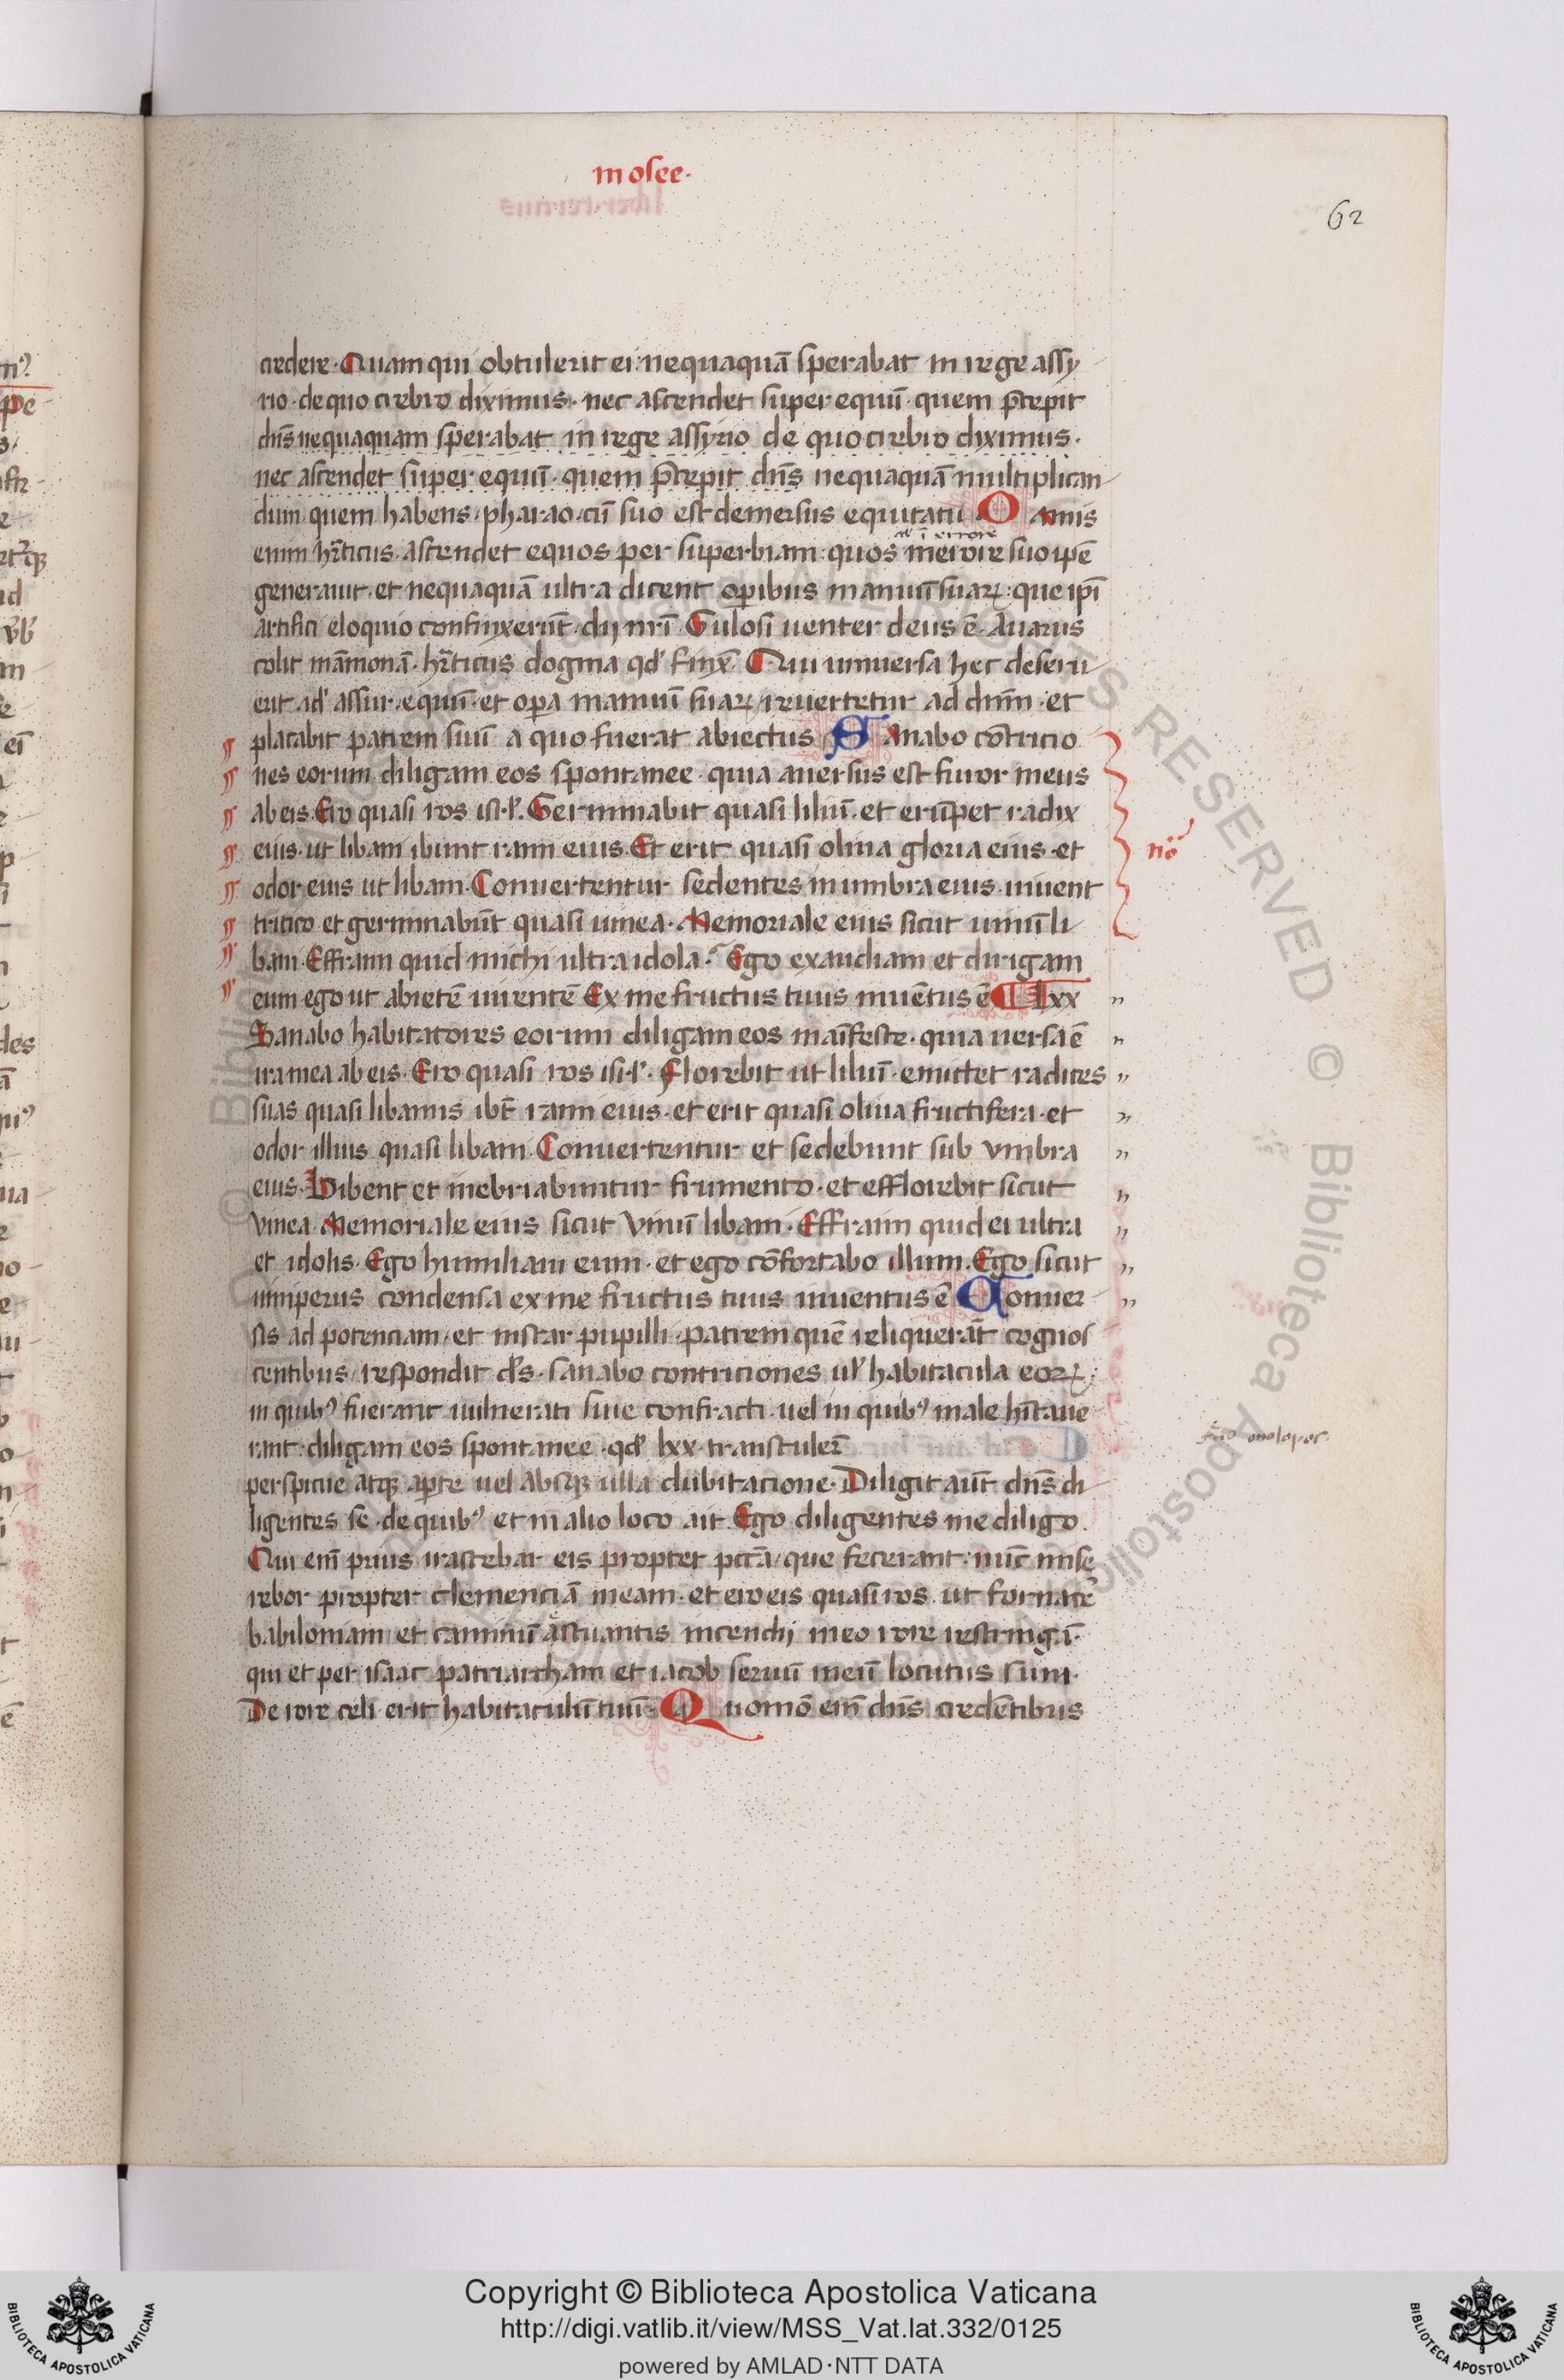 in osee.
62
credere. Quam qui obtulerit ei: nequaquā sperabat in rege assy
rio. de quo crebro diximus. nec ascendet super equū. quem p̄cepit
dn̄s nequaquam sperabat in rege assyrio de quo crebro diximus.
nec ascendet super equū. quem p̄cepit dn̄s nequaquā multiplican
dum. quem habens pharao. cū suo est demersus equitatu O mnis
enim hr̄ticus. ascendet equos per superbiam: quos in erore suo ip̄e
generauit. et nequaquā ultra dicent operibus manuū suaꝝ: que ip̄i
artifici eloquio confinxerūt. dij nr̄i. Gulosi uenter deus ē. Auarus
colit māmonā. hr̄ticus dogma qd' finx̄. Qui uniuersa hec deseru
erit id' assur. equū. et opera manuū suaꝝ / reuertetur ad dnm̄. et
placabit patrem suū a quo fuerat abiectus S Anabo cōtricio
nes eorum diligam eos spontanee. quia auersus est furor meus
ab eis. Ero quasi ros isr̄l. Germinabit quasi liliū. et erūpet radix
eius. ut libani ibunt rami eius. Et erit quasi oliua gloria eius. et
nō
odor eius ut libani. Conuertentur sedentes in umbra eius. uiuent
tritico et germinabūt quasi uinea. Memoriale eius sicut uinū li
bani. Effraim quid michi ultra idola. Ego exaudiam et dirigam
eum ego ut abietē uirentē Ex me fructus tuus inuētus ē lxx
Sanabo habitatores eorum diligam eos maīfeste. quia uersa ē
ira mea ab eis. Ero quasi ros isr̄l. Florebit ut liliū. emittet radices
suas quasi libanus ibt̄ rami eius. et erit quasi oliua fructifera. et
odor illius quasi libani Conuertentur et sedebunt sub vmbra
eius. Bibent et inebriabuntur frumento. et efflorebit sicut
vinea Memoriale eius sicut vinū libani. Effraim quid ei ultra
et idolis. Ego humiliaui eum. et ego cōfortabo illum. Ego sicut
iuniperus condensa ex me fructus tuus inuentus ē Conuer
sis ad potenciam / et instar pupilli patrem quē reliquerāt cognos
centibus / respondit ds̄. sanabo contriciones ul' habitacula eoꝝ:
in quibꝰ fuerant uulnerati siue confracti. uel in quibꝰ male hītaue
rant: diligam eos spontanee. qd' lxx. transtuler̄
perspicue atqꝫ aperte uel absqꝫ ulla dubitacione. Diligit aūt dn̄s di
ligentes se. de quibꝰ et in alio loco ait. Ego diligentes me diligo.
Qui em̄ prius irascebar eis propter pcc̄a / que fecerant: nūc mise
rebor propter clemenciā meam. et ero eis quasi ros. ut fornacē
babiloniam et caminū estuantis incendij meo rore restringā.
qui et per isaac patriarcham et iacob seruū meū locutus sum.
De rore celi erit habitaculū tuū. Q uomō em̄ dn̄s credētibus
Copyright © Biblioteca Apostolica Vaticana
http://digi.vatlib.it/view/MSS_Vat.lat.332/0125
powered by AMLAD·NTT DATA
BIBLIOTECA APOSTOLICA VATICANA
BIBLIOTECA APOSTOLICA VATICANA